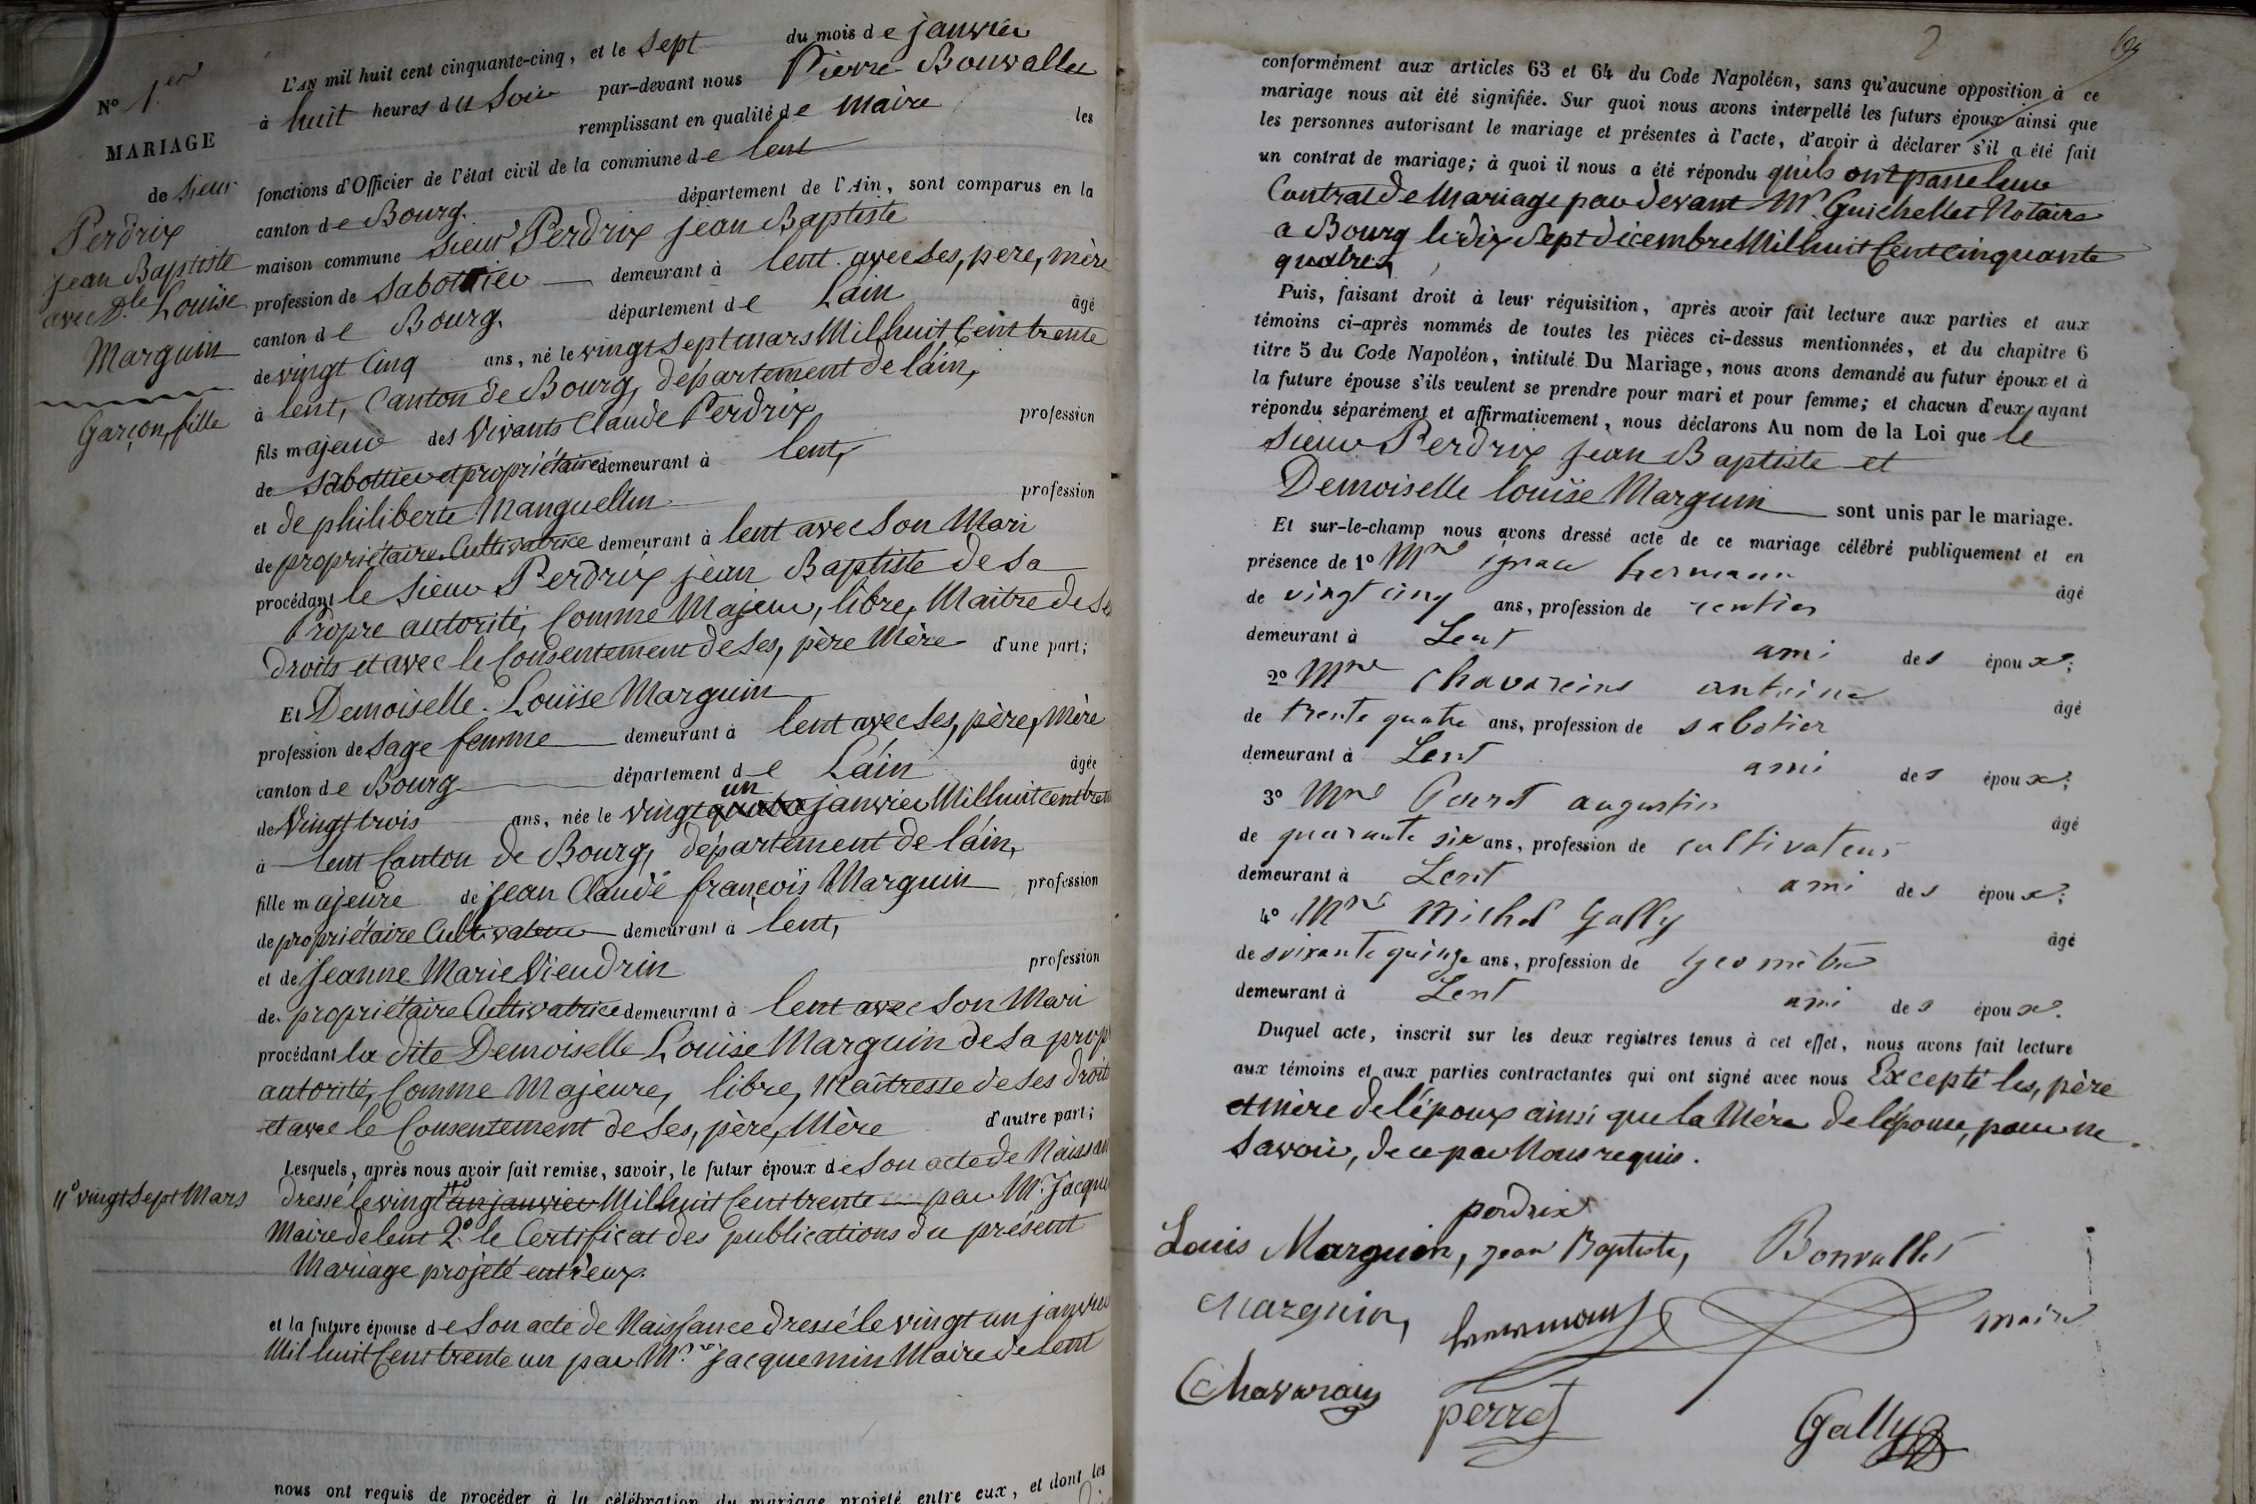 N° 1.er
MARIAGE
de Sieur
Perdrix
Jean Baptiste
avec Dlle Louïse
Marguin
Garçon, fille
1° vingt Sept Mars
L'AN mil huit cent cinquante-cinq, et le Sept du mois de janvier
à huit heures du Soir par-devant nous Pierre Bonvallet
remplissant en qualité de Maire les
fonctions d'Officier de l'état civil de la commune de lent
canton de Bourg. département de l'Ain, sont comparus en la
maison commune Sieur Perdrix Jean Baptiste
profession de Sabottier demeurant à lent avec Ses, père, mère
canton de Bourg. département de Láin âgé
de vingt Cinq ans, né le vingt Sept mars Mil huit Cent trente
à lent, Canton de Bourg, département de láin,
fils majeur des Vivants Claude Perdrix profession
de Sabottier et propriétaire demeurant à lent,
et de philiberte Manguellin profession
de propriétaire Cultivatrice demeurant à lent avec Son Mari
procédant le Sieur Perdrix jean Baptiste de Sa
Propre autorité, Comme Majeur, libre, Maitre de Ses
droits et avec le Consentement de Ses, père Mère d'une part;
Et Demoiselle. Louïse Marguin
profession de Sage femme demeurant à lent avec Ses, père, Mère
canton de Bourg département de Láin âgée
de Vingt trois ans, née le vingt un janvier Mil huit cent trente
à lent Canton de Bourg, département de láin,
fille majeure de Jean Claude françois Marguin profession
de propriétaire Cultivateur demeurant à lent,
et de Jeanne Marie Vieudrin profession
de propriétaire Cultivatrice demeurant à lent avec Son Mari
procédant la dite Demoiselle Louïse Marguin de Sa prop
autorité, Comme Majeure, libre, Maîtresse de Ses droits
et avec le Consentement de Ses, père, Mère d'autre part;
Lesquels, après nous avoir fait remise, savoir, le futur époux de Son acte de Naissan
dressé le vingt un janvier Mil huit Cent trente par Mr. Jacque
Maire de lent 2° le Certificat des publications du présent
Mariage projeté entr'eux.
et la future épouse de Son acte de Naissance dressé le vingt un janvier
Mil huit Cent trente un par Mr. Jacquemin Maire de lent
nous ont requis de procéder à la célébration du mariage projeté entre eux, et dont les
2
conformément aux articles 63 et 64 du Code Napoléon, sans qu'aucune opposition à ce
mariage nous ait été signifiée. Sur quoi nous avons interpellé les futurs époux ainsi que
les personnes autorisant le mariage et présentes à l'acte, d'avoir à déclarer s'il a été fait
un contrat de mariage; à quoi il nous a été répondu qu'ils ont passé un
Contrat de Mariage par devant Mr. Guichellet Notaire
a Bourg le dix Sept décembre Mil huit Cent Cinquante
quatre,
Puis, faisant droit à leur réquisition, après avoir fait lecture aux parties et aux
témoins ci-après nommés de toutes les pièces ci-dessus mentionnées, et du chapitre 6
titre 5 du Code Napoléon, intitulé Du Mariage, nous avons demandé au futur époux et à
la future épouse s'ils veulent se prendre pour mari et pour femme; et chacun d'eux ayant
répondu séparément et affirmativement, nous déclarons Au nom de la Loi que le
Sieur Perdrix Jean Baptiste et
Demoiselle Louïse Marguin sont unis par le mariage.
Et sur-le-champ nous avons dressé acte de ce mariage célébré publiquement et en
présence de 1° Mre ignace hermann âgé
de vingt cinq ans, profession de rentier
demeurant à Lent ami des époux;
2° Mre Chavareins antoine âgé
de trente quatre ans, profession de sabotier
demeurant à Lent ami des époux;
3° Mre Perret augustin âgé
de quarante six ans, profession de cultivateur
demeurant à Lent ami des époux;
4° Mre Michel Gally âgé
de soixante quinze ans, profession de Geomètre
demeurant à Lent ami des époux.
Duquel acte, inscrit sur les deux registres tenus à cet effet, nous avons fait lecture
aux témoins et aux parties contractantes qui ont signé avec nous Excepté les, père
et mère de l'époux ainsi que la Mère de l'épouse, pour ne
Savoir, de ce par Nous requis.
perdrix
Louis Marguin, jean Baptiste, Bonvallet
Marguin, hermann maire
Chavarain perret Gally